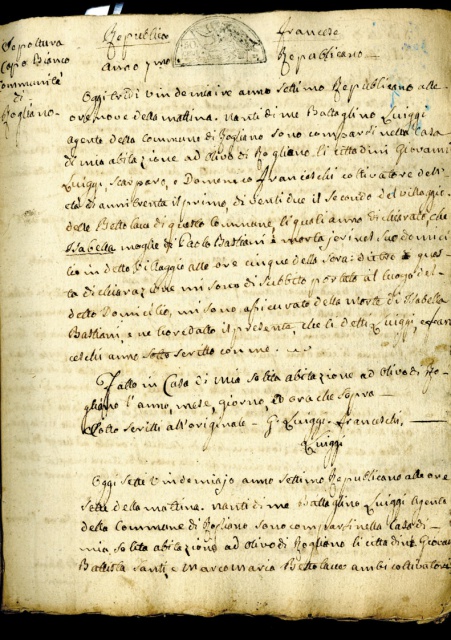 Sepoltura
Capo Bianco
Communità
di
Rogliano.
Republica Francese
Anno 7mo Republicano
Oggi tre di vindemiaire anno settimo Republicano alle
ore nove della mattina. nanti di me Battaglino Luiggi
agente della Commune di Rogliano sono comparsi nella Casa
di mia abitazione ad olivo di Rogliano li cittadini Giovanni
Luiggi, Scarparo, e Domenico Franceschi coltivatore dell'
età di anni trenta il primo, di venti due il secondo del villaggio
delle Bettolacce di questa Commune, li quali anno dichiarato che
Isabella moglie di Paolo Bastiani è morta jeri nel suo domici
lio in detto villaggio alle ore cinque della sera: dietro a ques
ta dichiarazione mi sono di subbito portato al luogo del
detto Domicilio, mi sono assicurato della morte di Isabella
Bastiani, e ne ho redatto il presente, che li detti Luiggi, e Fran
ceschi anno sotto scritto con me.
Fatto in Casa di mia solita abitazione ad olivo di Ro
gliano l'anno, mese, giorno ed ora che sopra
Sotto scritti all'originale - G. Luiggi. Franceschi,
Luiggi
Oggi sette vindemiajo anno settimo Republicano alle ore
sette della mattina. nanti di me Battaglino Luiggi Agente
della Commune di Rogliano sono comparsi nella Casa di
mia solita abitazione ad olivo di Rogliano li cittadini Giovan
Battista Santi, e Marco Maria Bettolacce ambi coltivatori